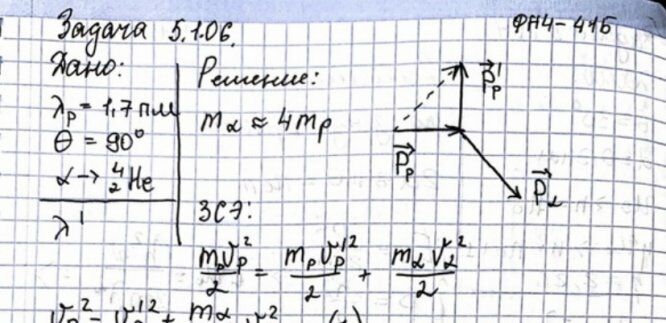 Задача 5.1.06.
ФН4-41Б
Дано:
λp = 1,7 пм
θ = 90°
α → ⁴₂He
λ'
Решение:
mα ≈ 4mp
P⃗p'
P⃗p
P⃗α
ЗСЭ:
mpVp²/2 = mpVp'²/2 + mαVα²/2